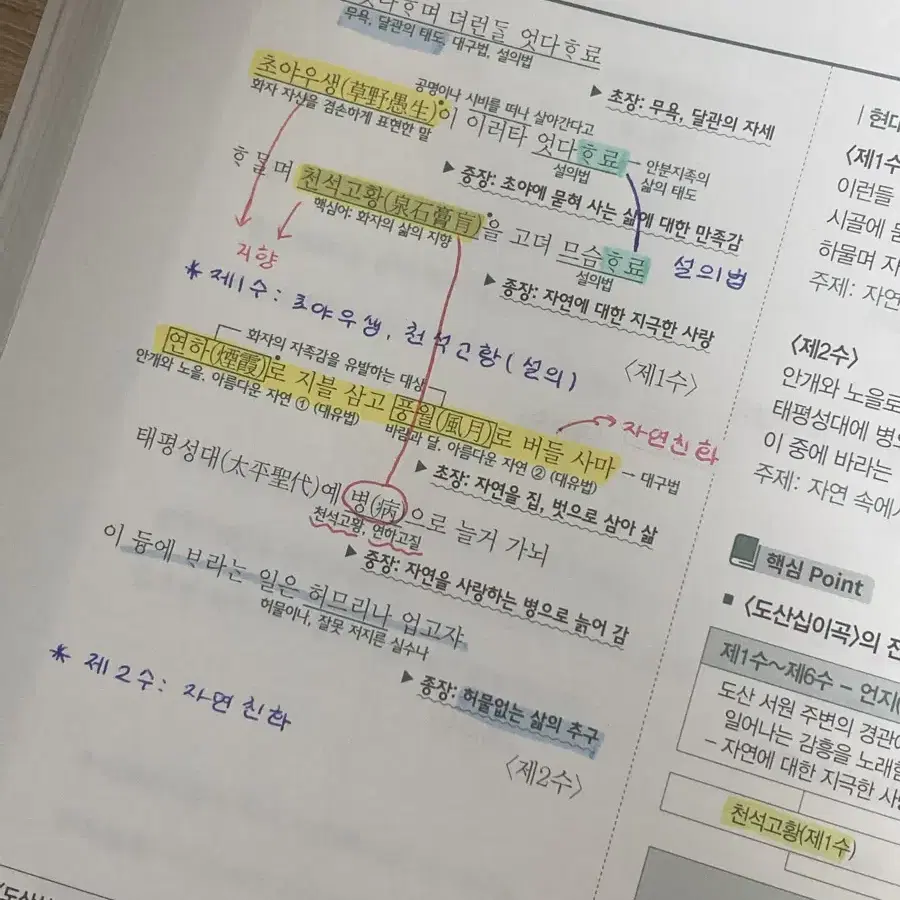 엇다ᄒᆞ며 뎌런들 엇다ᄒᆞ료
무욕, 달관의 태도, 대구법, 설의법
▶ 초장: 무욕, 달관의 자세
공명이나 시비를 떠나 살아간다고
초야우생(草野愚生)이 이러타 엇다ᄒᆞ료
화자 자신을 겸손하게 표현한 말
설의법
안분지족의
삶의 태도
▶ 중장: 초야에 묻혀 사는 삶에 대한 만족감
ᄒᆞ믈며 천석고황(泉石膏肓)을 고뎌 므슴ᄒᆞ료
핵심어: 화자의 삶의 지향
설의법
설의법
지향
▶ 종장: 자연에 대한 지극한 사랑
* 제1수: 초야우생, 천석고황(설의)
〈제1수〉
화자의 자족감을 유발하는 대상
연하(煙霞)로 지블 삼고 풍월(風月)로 버들 사마
안개와 노을. 아름다운 자연 ① (대유법)
바람과 달. 아름다운 자연 ② (대유법)
대구법
자연친화
▶ 초장: 자연을 집, 벗으로 삼아 삶
태평성대(太平聖代)예 병(病)으로 늘거 가뇌
천석고황, 연하고질
▶ 중장: 자연을 사랑하는 병으로 늙어 감
이 듕에 ᄇᆞ라는 일은 허므리나 업고쟈
허물이나, 잘못 저지른 실수나
▶ 종장: 허물없는 삶의 추구
* 제2수: 자연친화
〈제2수〉
현대
〈제1수
이런들
시골에
하물며
주제: 자연
〈제2수〉
안개와 노을로
태평성대에
이 중에 바라는
주제: 자연 속에서
핵심 Point
■ 〈도산십이곡〉의 전
제1수~제6수 – 언지
도산 서원 주변의 경관
일어나는 감흥을 노래
– 자연에 대한 지극한
천석고황(제1수)